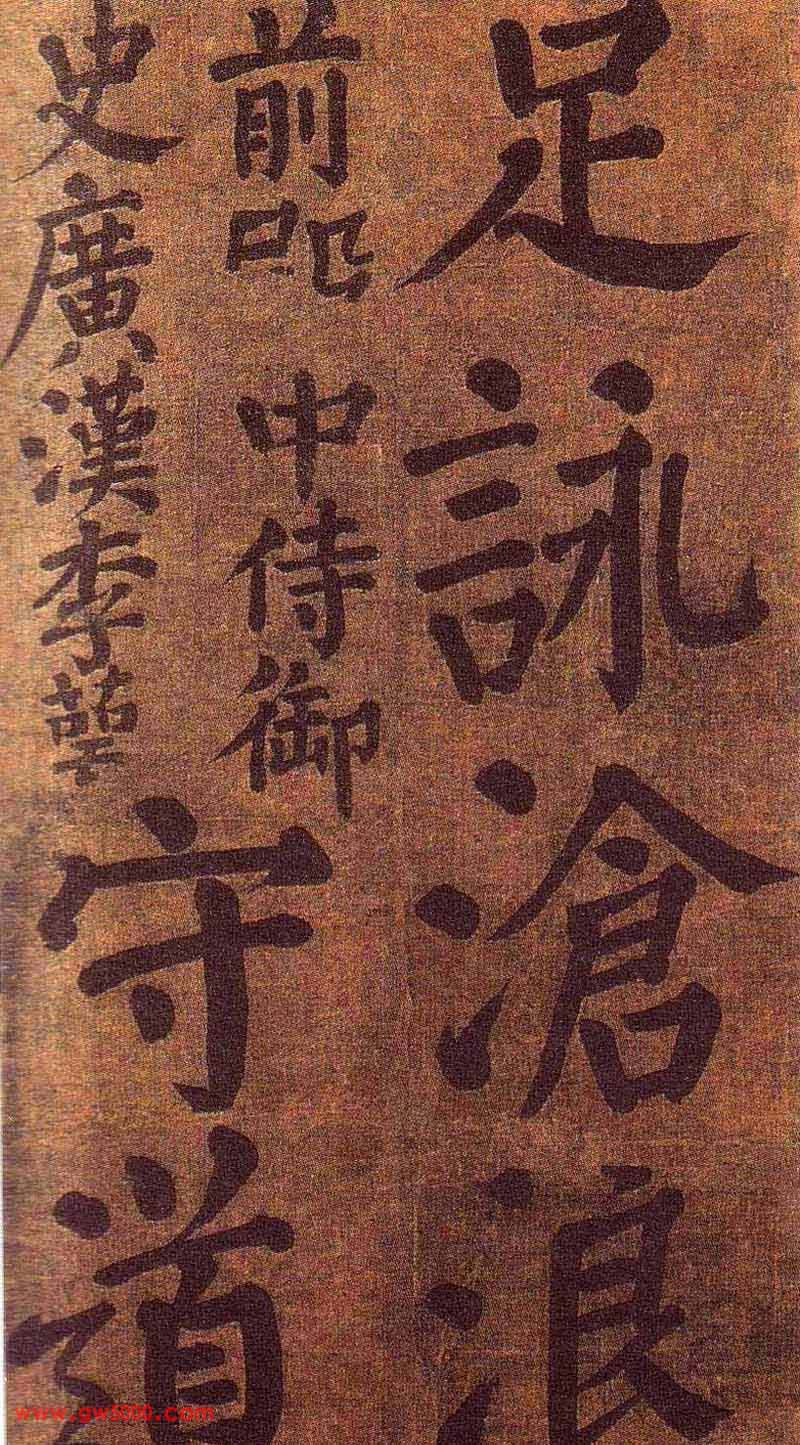 足詠滄浪
前中侍御
史廣漢李
守道
www.gw5000.com